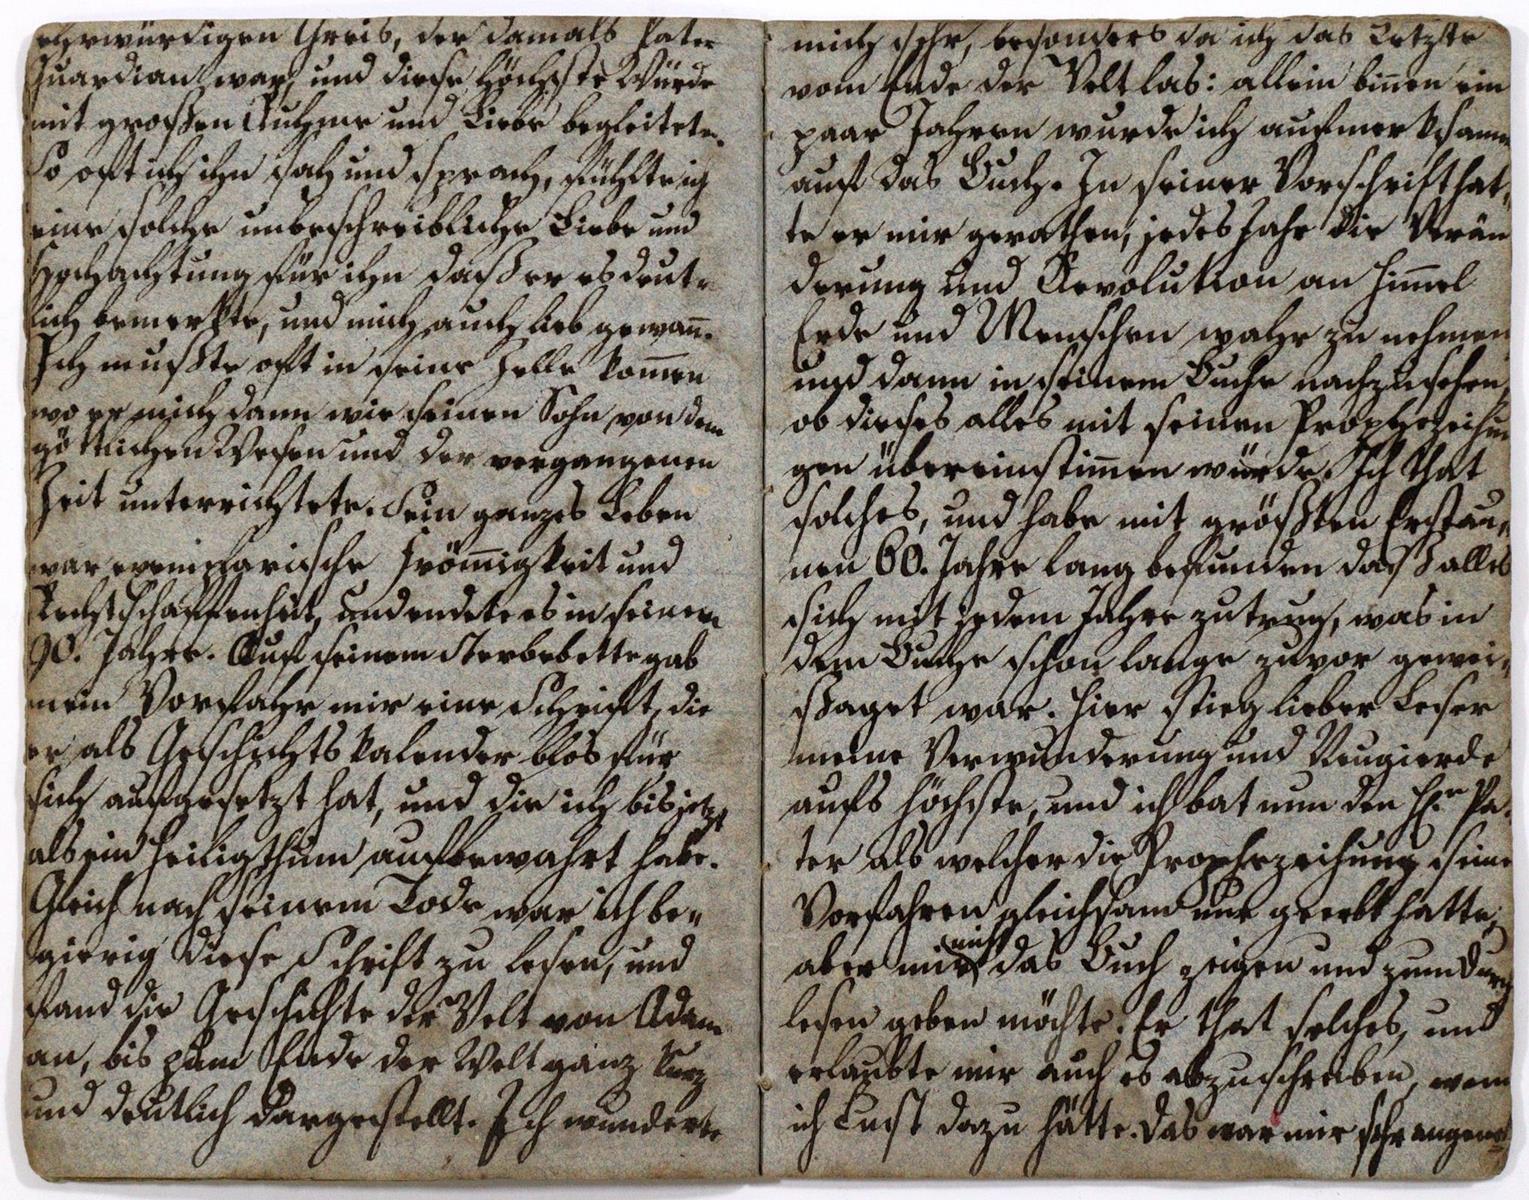 ehrwürdigen Greis, der damals Pater
Guardian war, und diese höchste Würde
mit großen Ruhme und Liebe begleitete.
So oft ich ihn sah und sprach, fühlte ich
eine solche unbeschreibliche Liebe und
Hochachtung für ihn daß er es deut-
lich bemerkte, und mich auch lieb gewan̄.
Ich mußte oft in seine Zelle kom̄en
wo er mich dann wie seinen Sohn von dem
göttlichen Wesen und der vergangenen
Zeit unterrichtete. Sein ganzes Leben
war exemplarische From̄igkeit und
Rechtschaffenheit, und endete es in seinem
90. Jahre. Auf seinem Sterbebette gab
mein Vorfahr mir eine Schrift, die
er als Geschichtskalender blos für
sich aufgesetzt hat, und die ich bis jetzt
als ein Heiligthum aufbewahrt habe.
Gleich nach seinem Tode war ich be-
gierig diese Schrift zu lesen, und
fand die Geschichte der Welt von Adam
an, bis zum Ende der Welt ganz kurz
und deutlich dargestellt. Ich wunderte
mich sehr, besonders da ich das Letzte
vom Ende der Welt las: allein bin̄en ein
paar Jahren wurde ich aufmerksamm
auf das Buch. In seiner Vorschrift hat-
te er mir gerathen, jedes Jahr die Verän
derung und Revolution an Him̄el
Erde und Menschen wahr zu nehmen
und dann in seinem Buche nachzusehen,
ob dieses alles mit seinen Prophezeihun
gen übereinstim̄en würde. Ich that
solches, und habe mit größten Erstau-
nen 60. Jahre lang befunden daß alles
sich mit jedem Jahre zutrug, was in
dem Buche schon lange zuvor gewei-
ßaget war. Hier stieg lieber Leser
meine Verwunderung und Neugierde
aufs höchste, und ich bat nun den Hrn Pa-
ter als welcher die Prophezeihung seine
Vorfahren gleichsam nur geerbt hatte,
aber mir das Buch zeigen und zum Durch
lesen geben möchte. Er that solches, und
erlaubte mir auch es abzuschreiben, wenn
ich Lust dazu hätte. Das war mir sehr angeneh